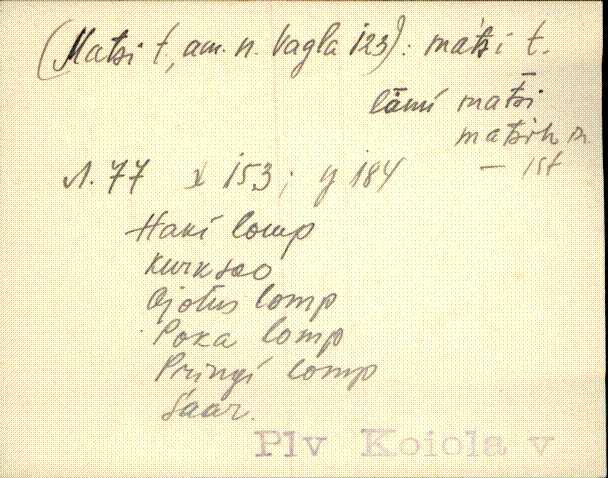 (Matsi t, am. n. Vagla 123): mat́si t.
lämi mat̄si
mat̄sih n.
— ist
Л. 77 x 153; y 184
Haki lomp
Kurksoo
Ojotus lomp
Poka lomp
Pringi lomp
Saar.
Plv Koiola v